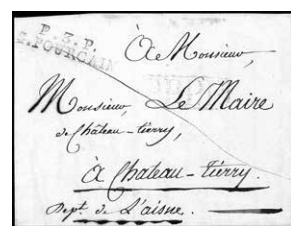 P. 3. P.
S. POURCAIN
À Monsieur,
Monsieur, Le Maire
de Château-tierry,
à Chateau-tierry.
Dept. de L'aisne.